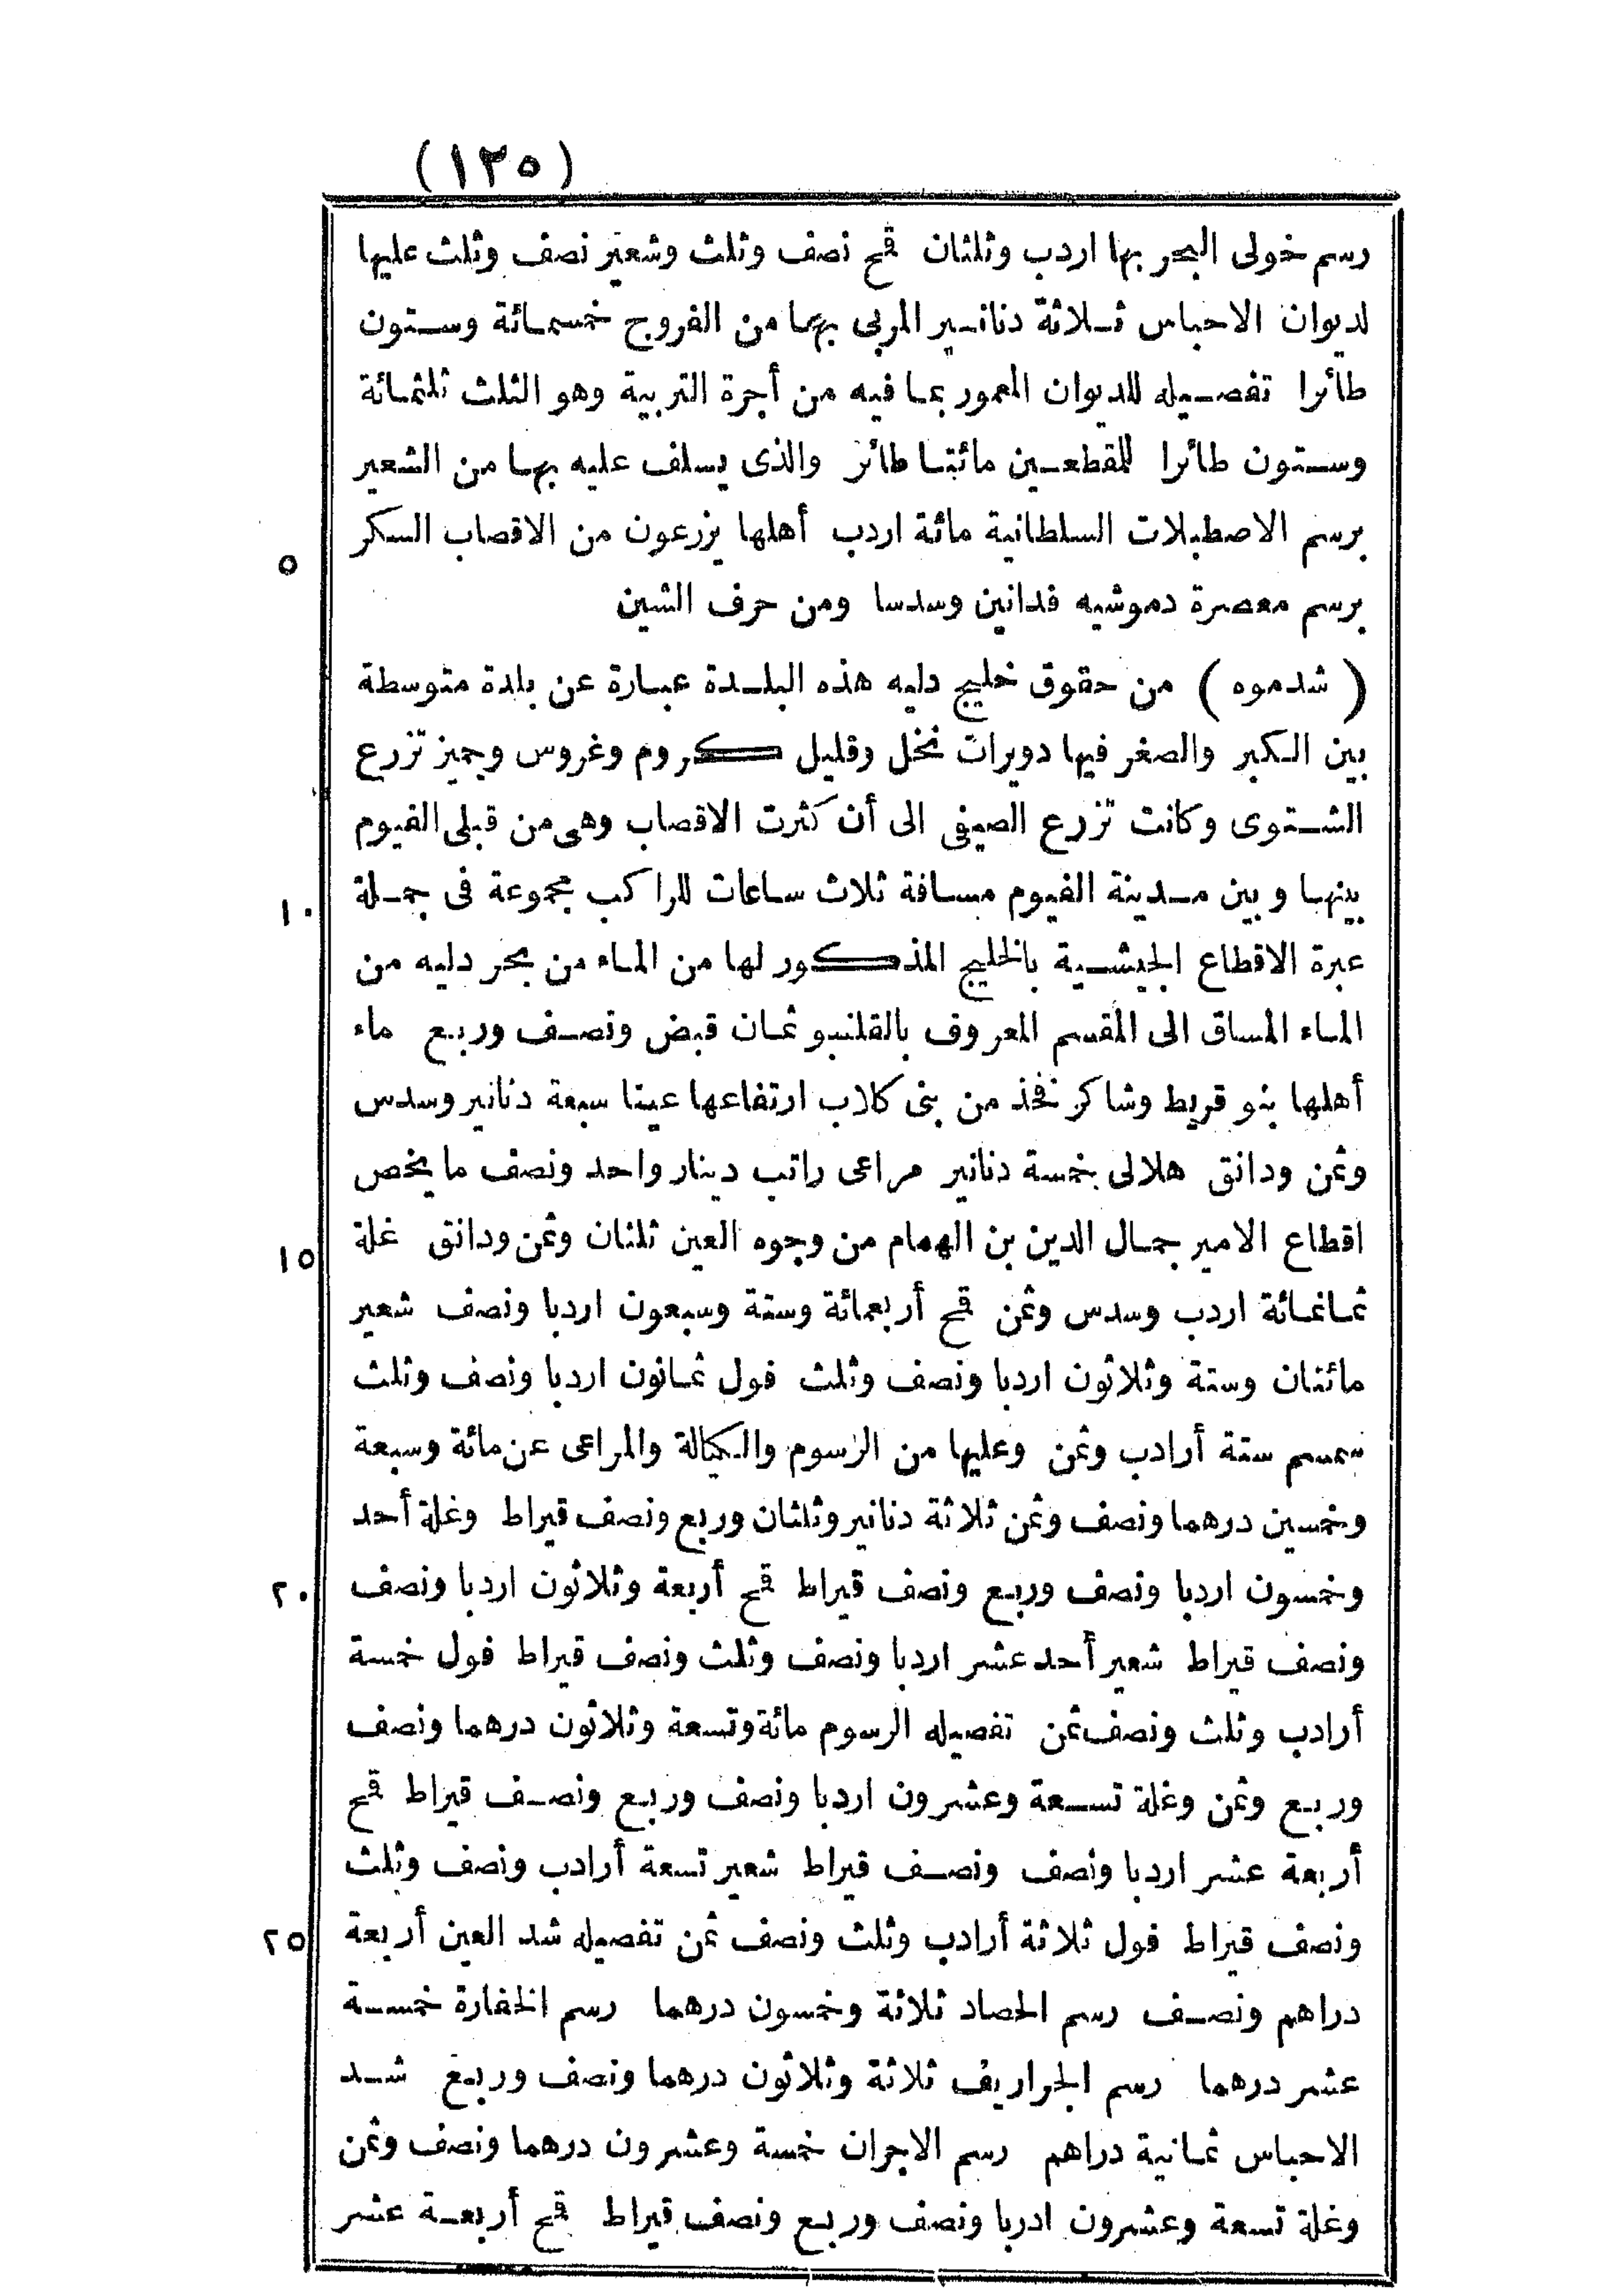 (١٣٥)
رسم خولى البحر بها اردب وثلثان قمح نصف وثلث وشعير نصف وثلث عليها
لديوان الاحباس ثلاثة دنانير المربى بها من الفروج خمسمائة وستون
طائرا تفصيله للديوان المعمور بما فيه من أجرة التربية وهو الثلث ثلثمائة
وستون طائرا للمقطعين مائتا طائر والذى يسلف عليه بها من الشعير
برسم الاصطبلات السلطانية مائة اردب أهلها يزرعون من الاقصاب السكر
٥
برسم معصرة دموشيه فدانين وسدسا ومن حرف الشين
( شدموه ) من حقوق خليج دليه هذه البلدة عبارة عن بلدة متوسطة
بين الكبر والصغر فيها دويرات نخل وقليل كروم وغروس وجميز تزرع
الشتوى وكانت تزرع الصيفى الى أن كثرت الاقصاب وهى من قبلى الفيوم
بينها وبين مدينة الفيوم مسافة ثلاث ساعات للراكب مجموعة فى جملة
١٠
عبرة الاقطاع الجيشية بالخليج المذكور لها من الماء من بحر دليه من
الماء المساق الى المقسم المعروف بالقلنبو ثمان قبض ونصف وربع ماء
أهلها بنو قريط وشاكر فخذ من بنى كلاب ارتفاعها عينا سبعة دنانير وسدس
وثمن ودانق هلالى خمسة دنانير مراعى راتب دينار واحد ونصف ما يخص
اقطاع الامير جمال الدين بن الهمام من وجوه العين ثلثان وثمن ودانق غلة
١٥
ثمانمائة اردب وسدس وثمن قمح أربعمائة وستة وسبعون اردبا ونصف شعير
مائتان وستة وثلاثون اردبا ونصف وثلث فول ثمانون اردبا ونصف وثلث
سمسم ستة أرادب وثمن وعليها من الرسوم والكيالة والمراعى عن مائة وسبعة
وخمسين درهما ونصف وثمن ثلاثة دنانير وثلثان وربع ونصف قيراط وغلة أحد
وخمسون اردبا ونصف وربع ونصف قيراط قمح أربعة وثلاثون اردبا ونصف
٢٠
ونصف قيراط شعير أحد عشر اردبا ونصف وثلث ونصف قيراط فول خمسة
أرادب وثلث ونصف ثمن تفصيله الرسوم مائة وتسعة وثلاثون درهما ونصف
وربع وثمن وغلة تسعة وعشرون اردبا ونصف وربع ونصف قيراط قمح
أربعة عشر اردبا ونصف ونصف قيراط شعير تسعة أرادب ونصف وثلث
ونصف قيراط فول ثلاثة أرادب وثلث ونصف ثمن تفصيله شد العين أربعة
٢٥
دراهم ونصف رسم الحصاد ثلاثة وخمسون درهما رسم الخفارة خمسة
عشر درهما رسم الجراريف ثلاثة وثلاثون درهما ونصف وربع شد
الاحباس ثمانية دراهم رسم الاجران خمسة وعشرون درهما ونصف وثمن
وغلة تسعة وعشرون ادربا ونصف وربع ونصف قيراط قمح أربعة عشر